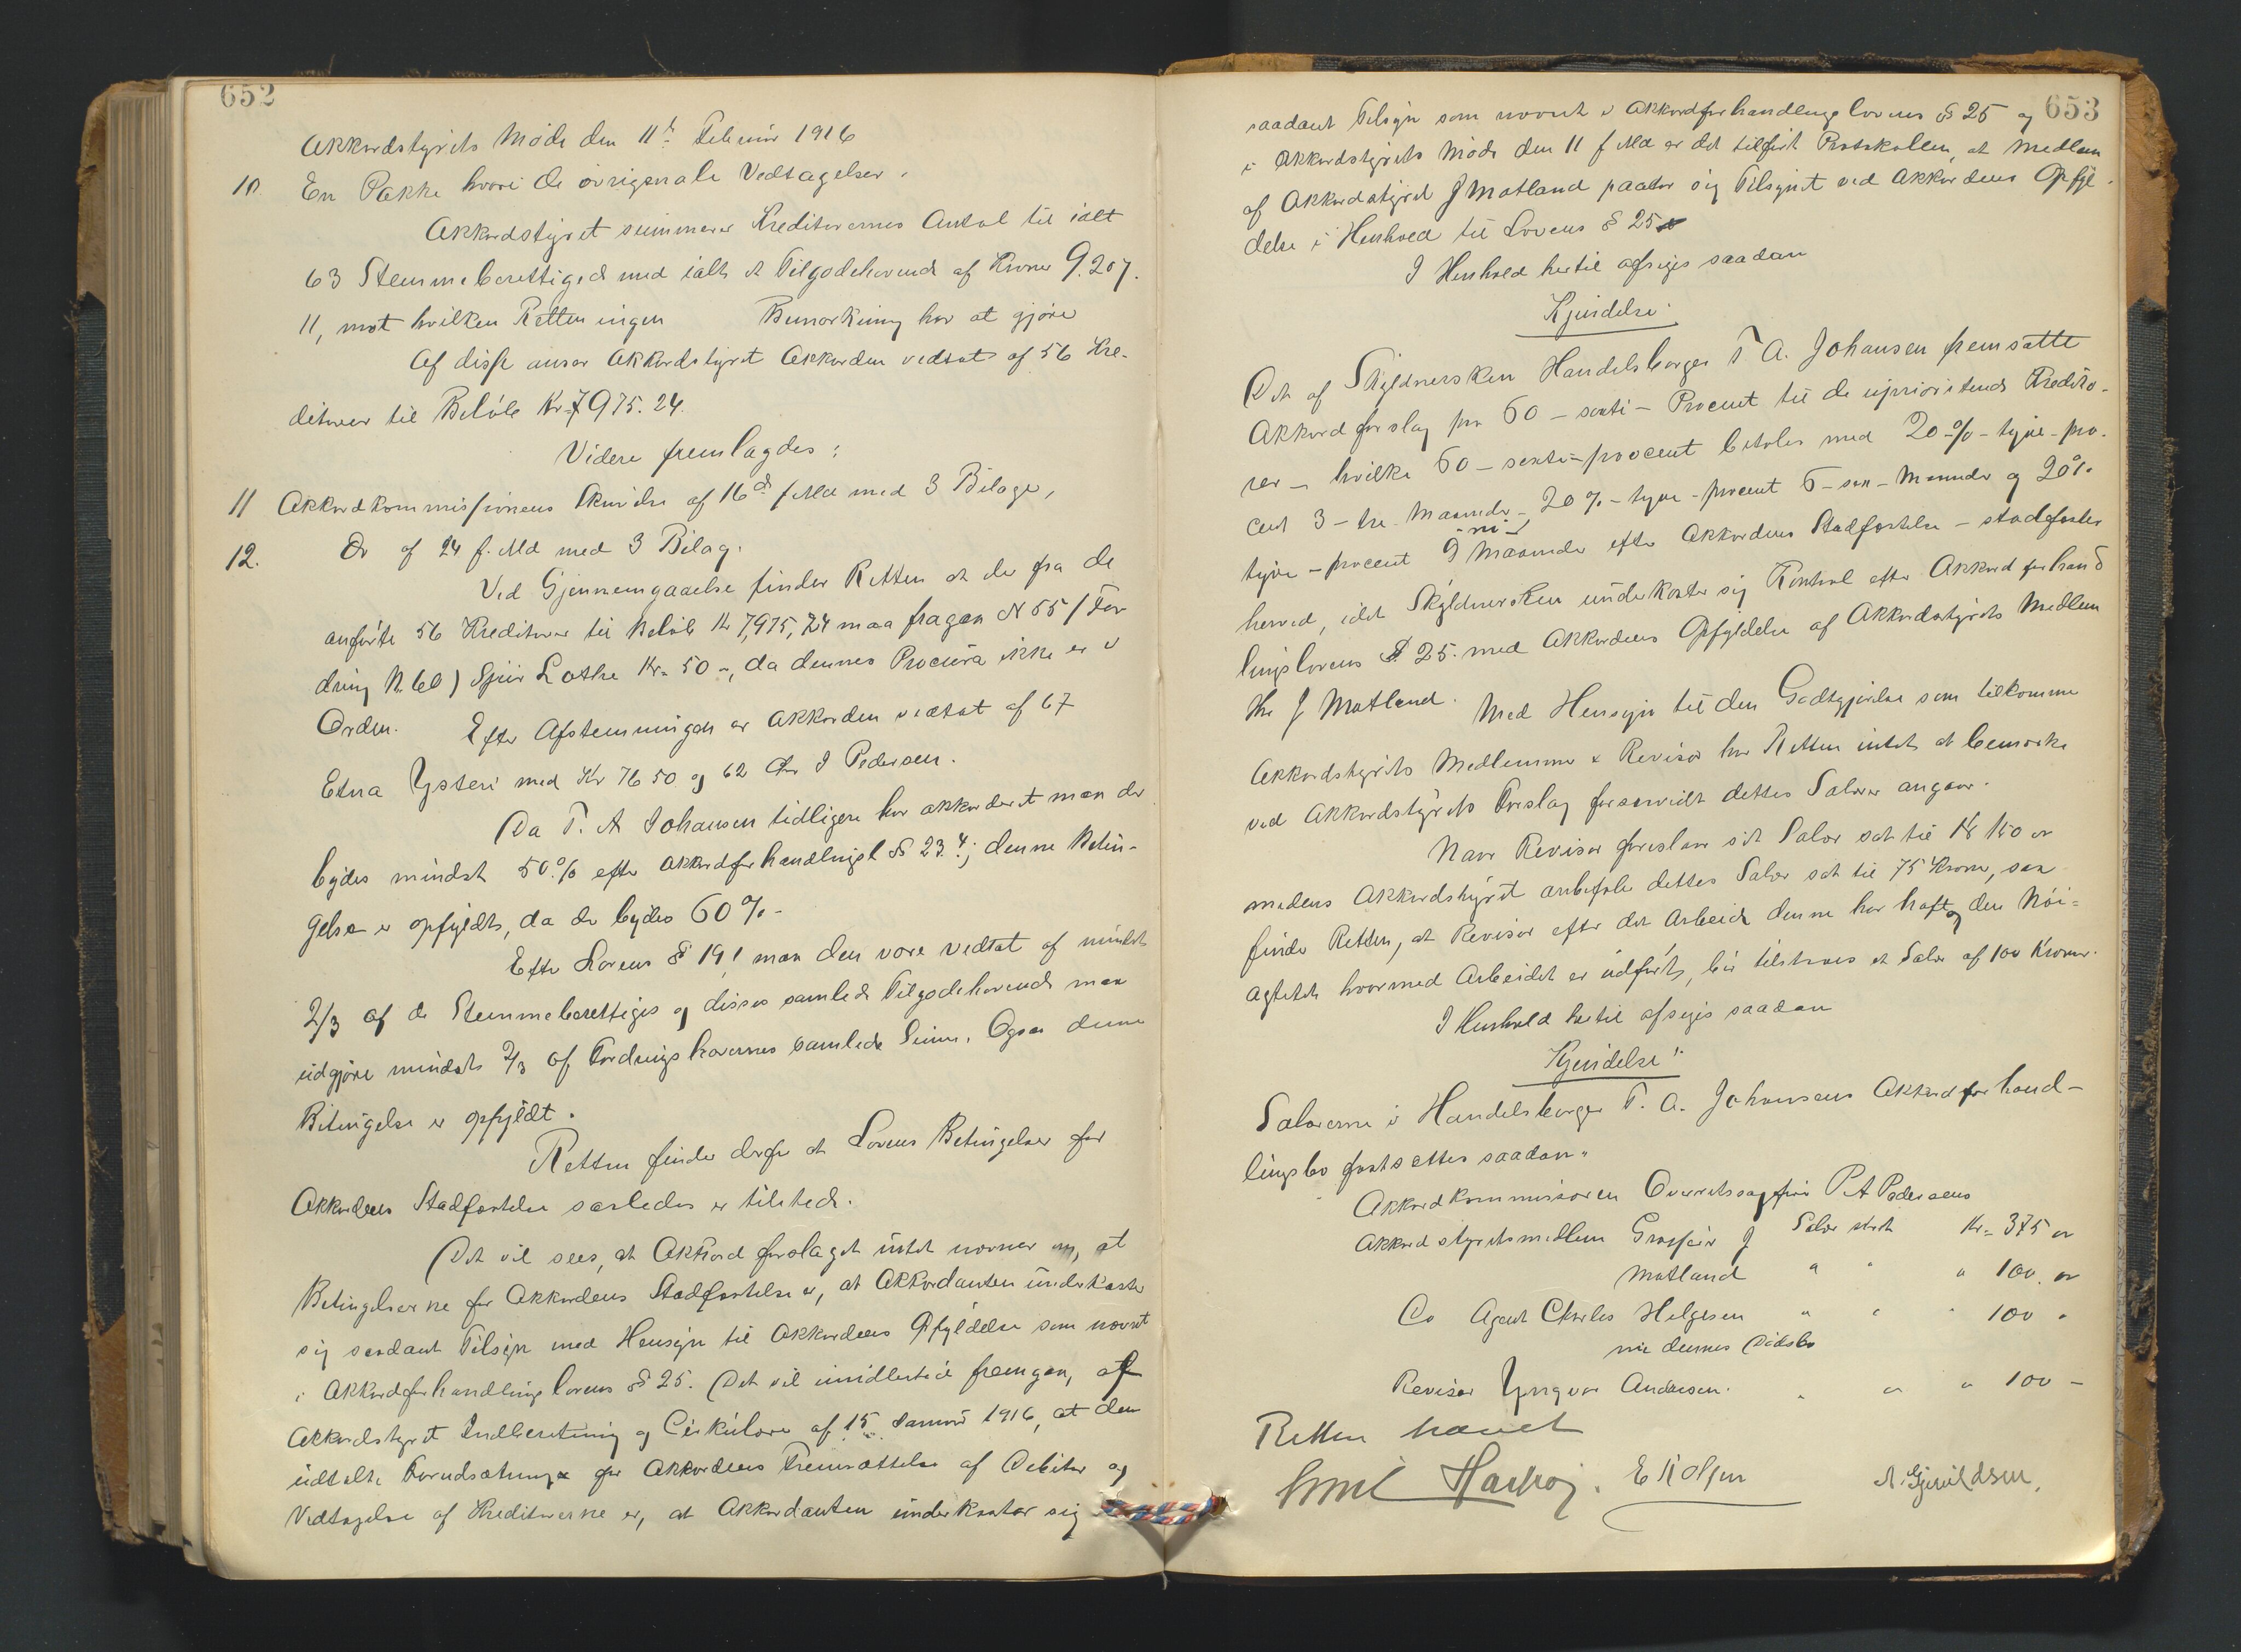 652
Akkordstyrets Møde den 11te Februar 1916
10. En Pakke hvori de originale Vedtagelser.
Akkordstyret summerer Kreditorernes Antal til ialt
63 Stemmeberettiged med ialt et Tilgodehavende af Kroner 9.207.
11, mot hvilken Retten ingen Bemærkning har at gjøre
Af disse anser Akkordstyret Akkorden vedtat af 56 Kre-
ditorer til Beløb Kr 7975.24.
Videre fremlagdes:
11 Akkordkommissionens Skrivelse af 16de f Md med 3 Bilage,
12. Do af 24 f. Md med 3 Bilag.
Ved Gjennemgaaelse finder Retten at der fra de
anførte 56 Kreditorer til Beløb Kr 7,975,24 maa fragaa N 55 (For
dring N. 60) Sjur Lothe Kr. 50 -, da dennes Procura ikke er i
Orden. Efter Afstemningen er Akkorden vedtat af 67
Etna Ysteri med Kr 76 50 og 62 Chr I Pedersen.
Da T. A Johansen tidligere har akkorderet maa der
bydes mindst 50% efter Akkordforhandlingsl § 23.4; denne Betin-
gelse er opfyldt, da der bydes 60%.-
Efter Lovens § 19.1 maa den være vedtat af mindst
2/3 af de Stemmeberettiges og disses samlede Tilgodehavende maa
udgjøre mindst 2/3 af Fordringshavernes samlede Sum. Ogsaa denne
Betingelse er opfyldt.
Retten finder derfor at Lovens Betingelser for
Akkordens Stadfæstelse saaledes er tilstede.
Det vil sees, at Akkordforslaget intet nævner om, at
Betingelserne for Akkordens Stadfæstelse er, at Akkordanten underkaster
sig saadant Tilsyn med Hensyn til Akkordens Opfyldelse som nævnt
i Akkordforhandlingslovens § 25. Det vil imidlertid fremgaa, af
Akkordstyret Indberetning og Cirkulære af 15 Januar 1916, at den
udtalte Forudsætning for Akkordens Fremsættelse af Debitor og
Vedtagelse af Kreditorerne er, at Akkordanten underkaster sig
653
saadant Tilsyn som nævnt i Akkordforhandlingslovens § 25 og
i Akkordstyrets Møde den 11 f Md er det tilført Protokollen, at Medlem
af Akkordstyret J Matland paatar sig Tilsynet ved Akkordens Opfyl-
delse i Henhold til Lovens § 25
I Henhold hertil afsiges saadan
Kjendelse:
Det af Skyldnersken Handelsborger T A. Johansen fremsatte
Akkordforslag paa 60 - sexti - Procent til de uprioriterede Kredito-
rer - hvilke 60 - sexti - procent betales med 20 % - tyve - pro-
cent 3 - tre - Maaneder - 20 % - tyve - procent 6 - sex - Maaneder og 20%
tyve - procent 9 - ni - Maaneder efter Akkordens Stadfæstelse - stadfæstes
herved, idet Skyldnersken underkaster sig Kontrol efter Akkordforhand
lingslovens § 25. med Akkordens Opfyldelse af Akkordstyrets Medlem
Hr J Matland. Med Hensyn til den Godtgjørelse som tilkommer
Akkordstyrets Medlemmer & Revisor har Retten intet at bemærke
ved Akkordstyrets Forslag forsaavidt dettes Salærer angaar.
Naar Revisor foreslaar sit Salær sat til Kr 150 or
medens Akkordstyret anbefaler dettes Salær sat til 75 Kroner, saa
finder Retten, at Revisor efter det Arbeide denne har haft og den Nøi-
agtighed hvormed Arbeidet er udført, bør tilstaaes et Salær af 100 Kroner.
I Henhold hertil afsiges saadan
Kjendelse:
Salærerne i Handelsborger T. A. Johansens Akkordforhand-
lingsbo fastsættes saadan:
Akkordkommissæren Overretssagfører P A Pedersens
Salær stort Kr. 375 or
Akkordstyretsmedlem Grosserer J
Matland " " " 100. or
Do Agent Charles Helgesen " " " 100 "
nu dennes Dødsbo
Revisor Yngvar Andersen. " " " 100 -
Retten hævet
Emil E N. Gjerildsen.